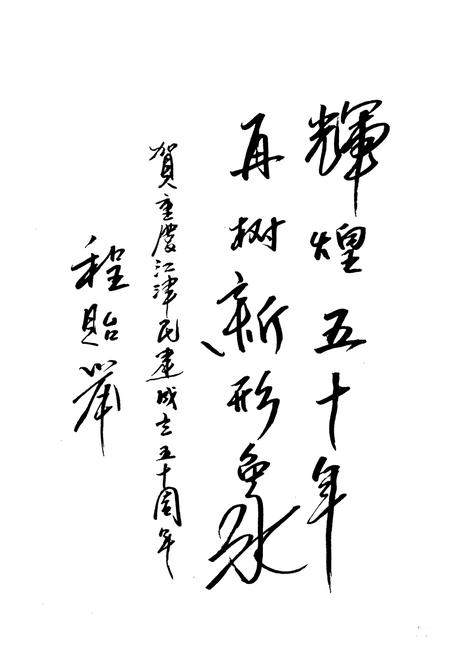 輝煌五十年
再树新形象
賀重慶江津民建成立五十周年
程貽举